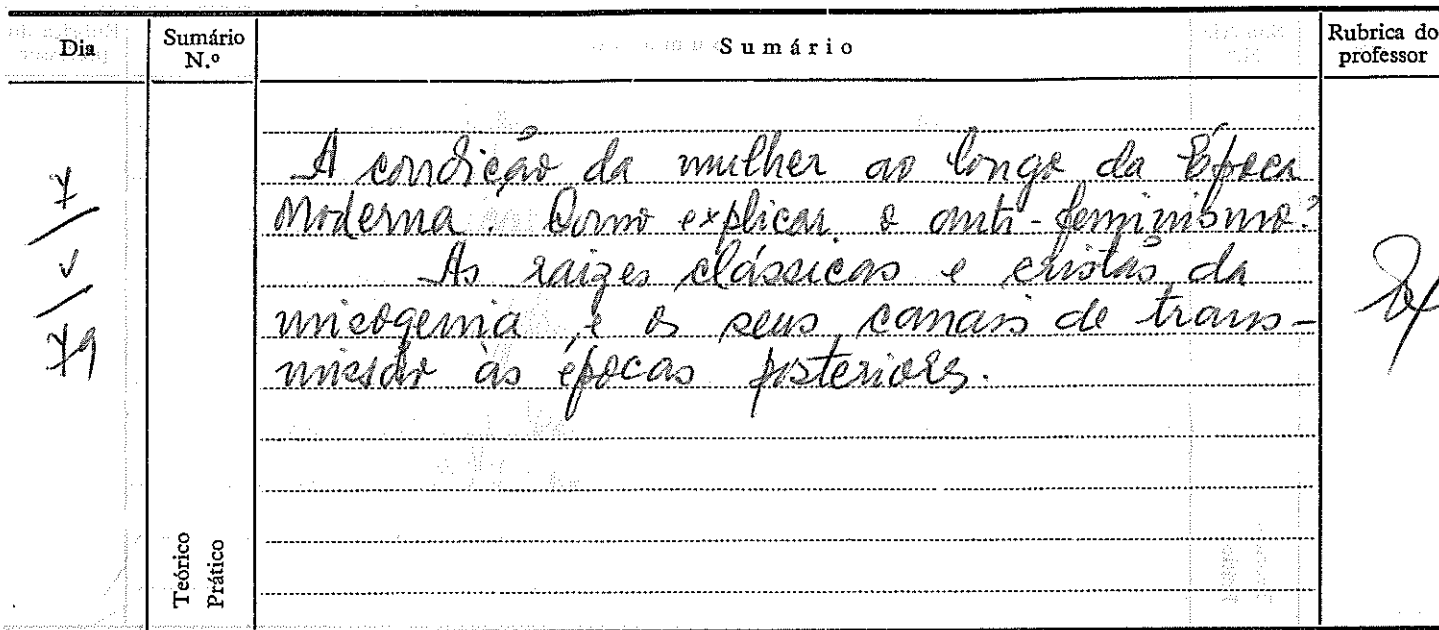 Dia Sumário N.º Sumário Rubrica do professor
A condição da mulher ao longo da Época
Moderna. Como explicar o anti-feminismo?
As raizes clássicas e cristãs da
misogenia e os seus canais de trans-
missão às épocas posteriores.
7/V/79
Teórico
Prático